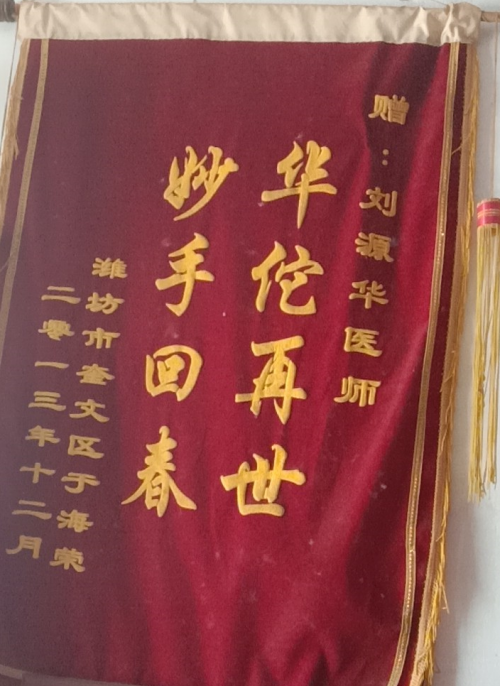 赠：刘源华医师
华佗再世
妙手回春
潍坊市奎文区于海荣
二零一三年十二月